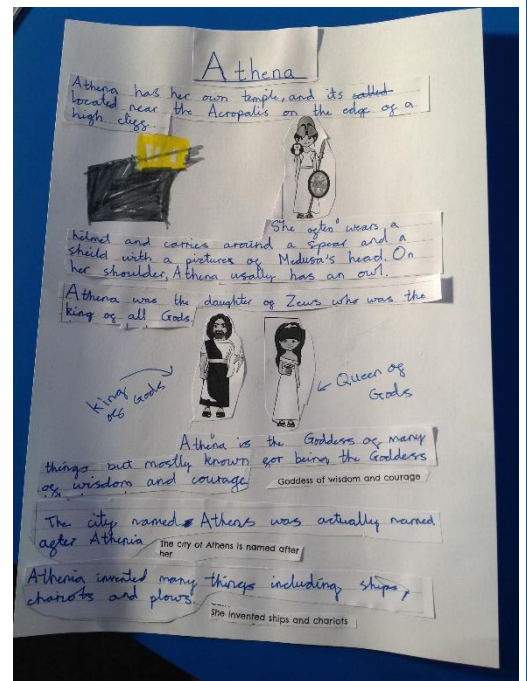 Athena
Athena has her own temple, and its called
located near the Acropalis on the edge of a
high cliff.
She often wears a
helmet and carries around a spear and a
sheild with a pictures of Medusa's head. On
her shoulder, Athena usally has an owl.
Athena was the daughter of Zeus who was the
king of all Gods
King of Gods
Queen of
Gods
Athena is the Goddess of many
things but mostly known for being the Goddess
of wisdom and courage
Goddess of wisdom and courage
The city named Athens was actually named
after Athenia
The city of Athens is named after
her
Athenia invented many things including ships,
chariots and plows.
She invented ships and chariots